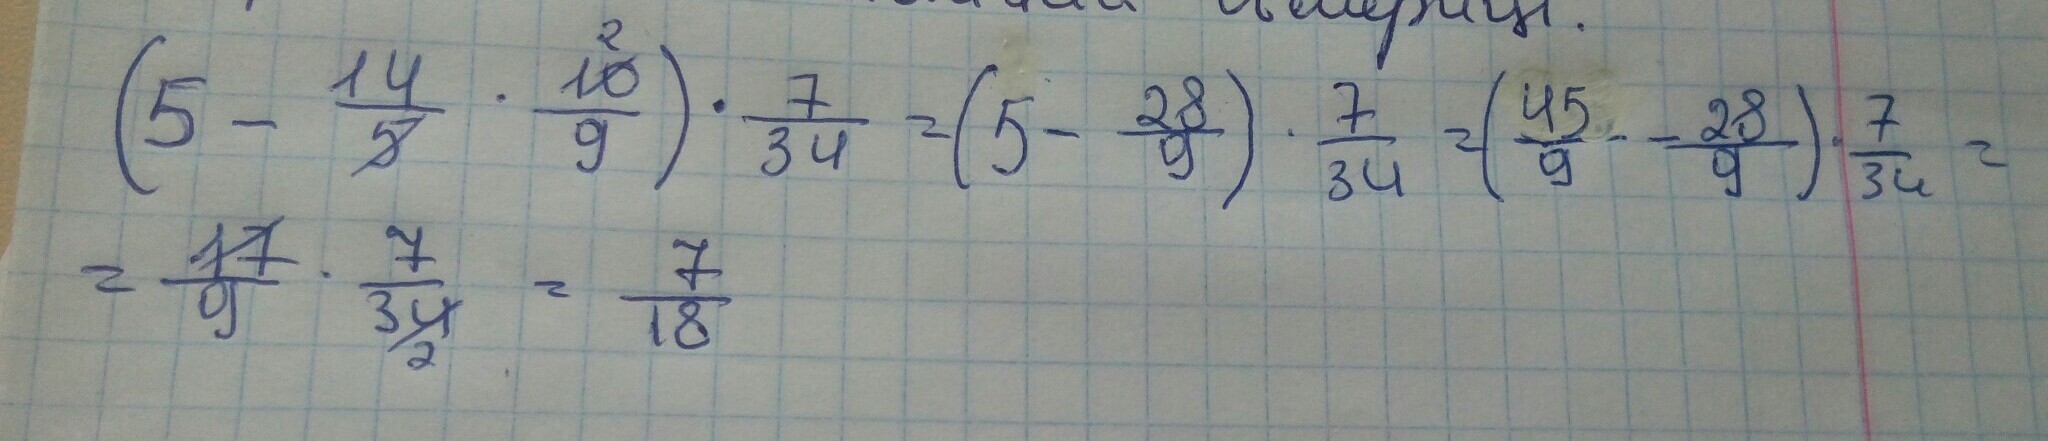 (5 - 14/5 · 10/9) · 7/34 = (5 - 28/9) · 7/34 = (45/9 - - 28/9) · 7/34 =
= 17/9 · 7/34 = 7/18